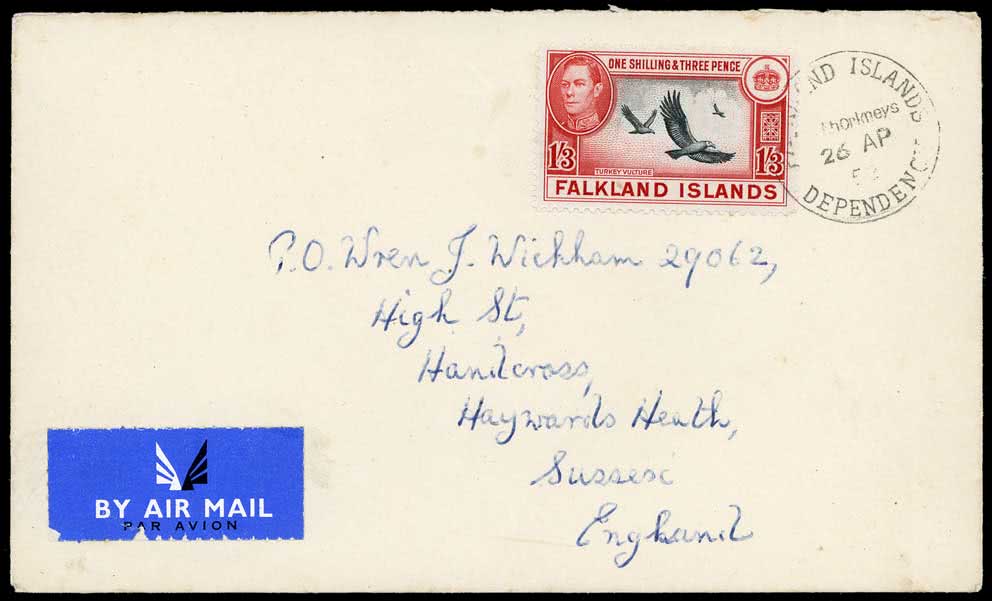 ONE SHILLING & THREE PENCE
1/3 1/3
TURKEY VULTURE
FALKLAND ISLANDS
ISLANDS
26 AP
P.O. Wren J. Wickham 29062,
High St,
Handcross,
Haywards Heath,
Sussex
England
BY AIR MAIL
PAR AVION